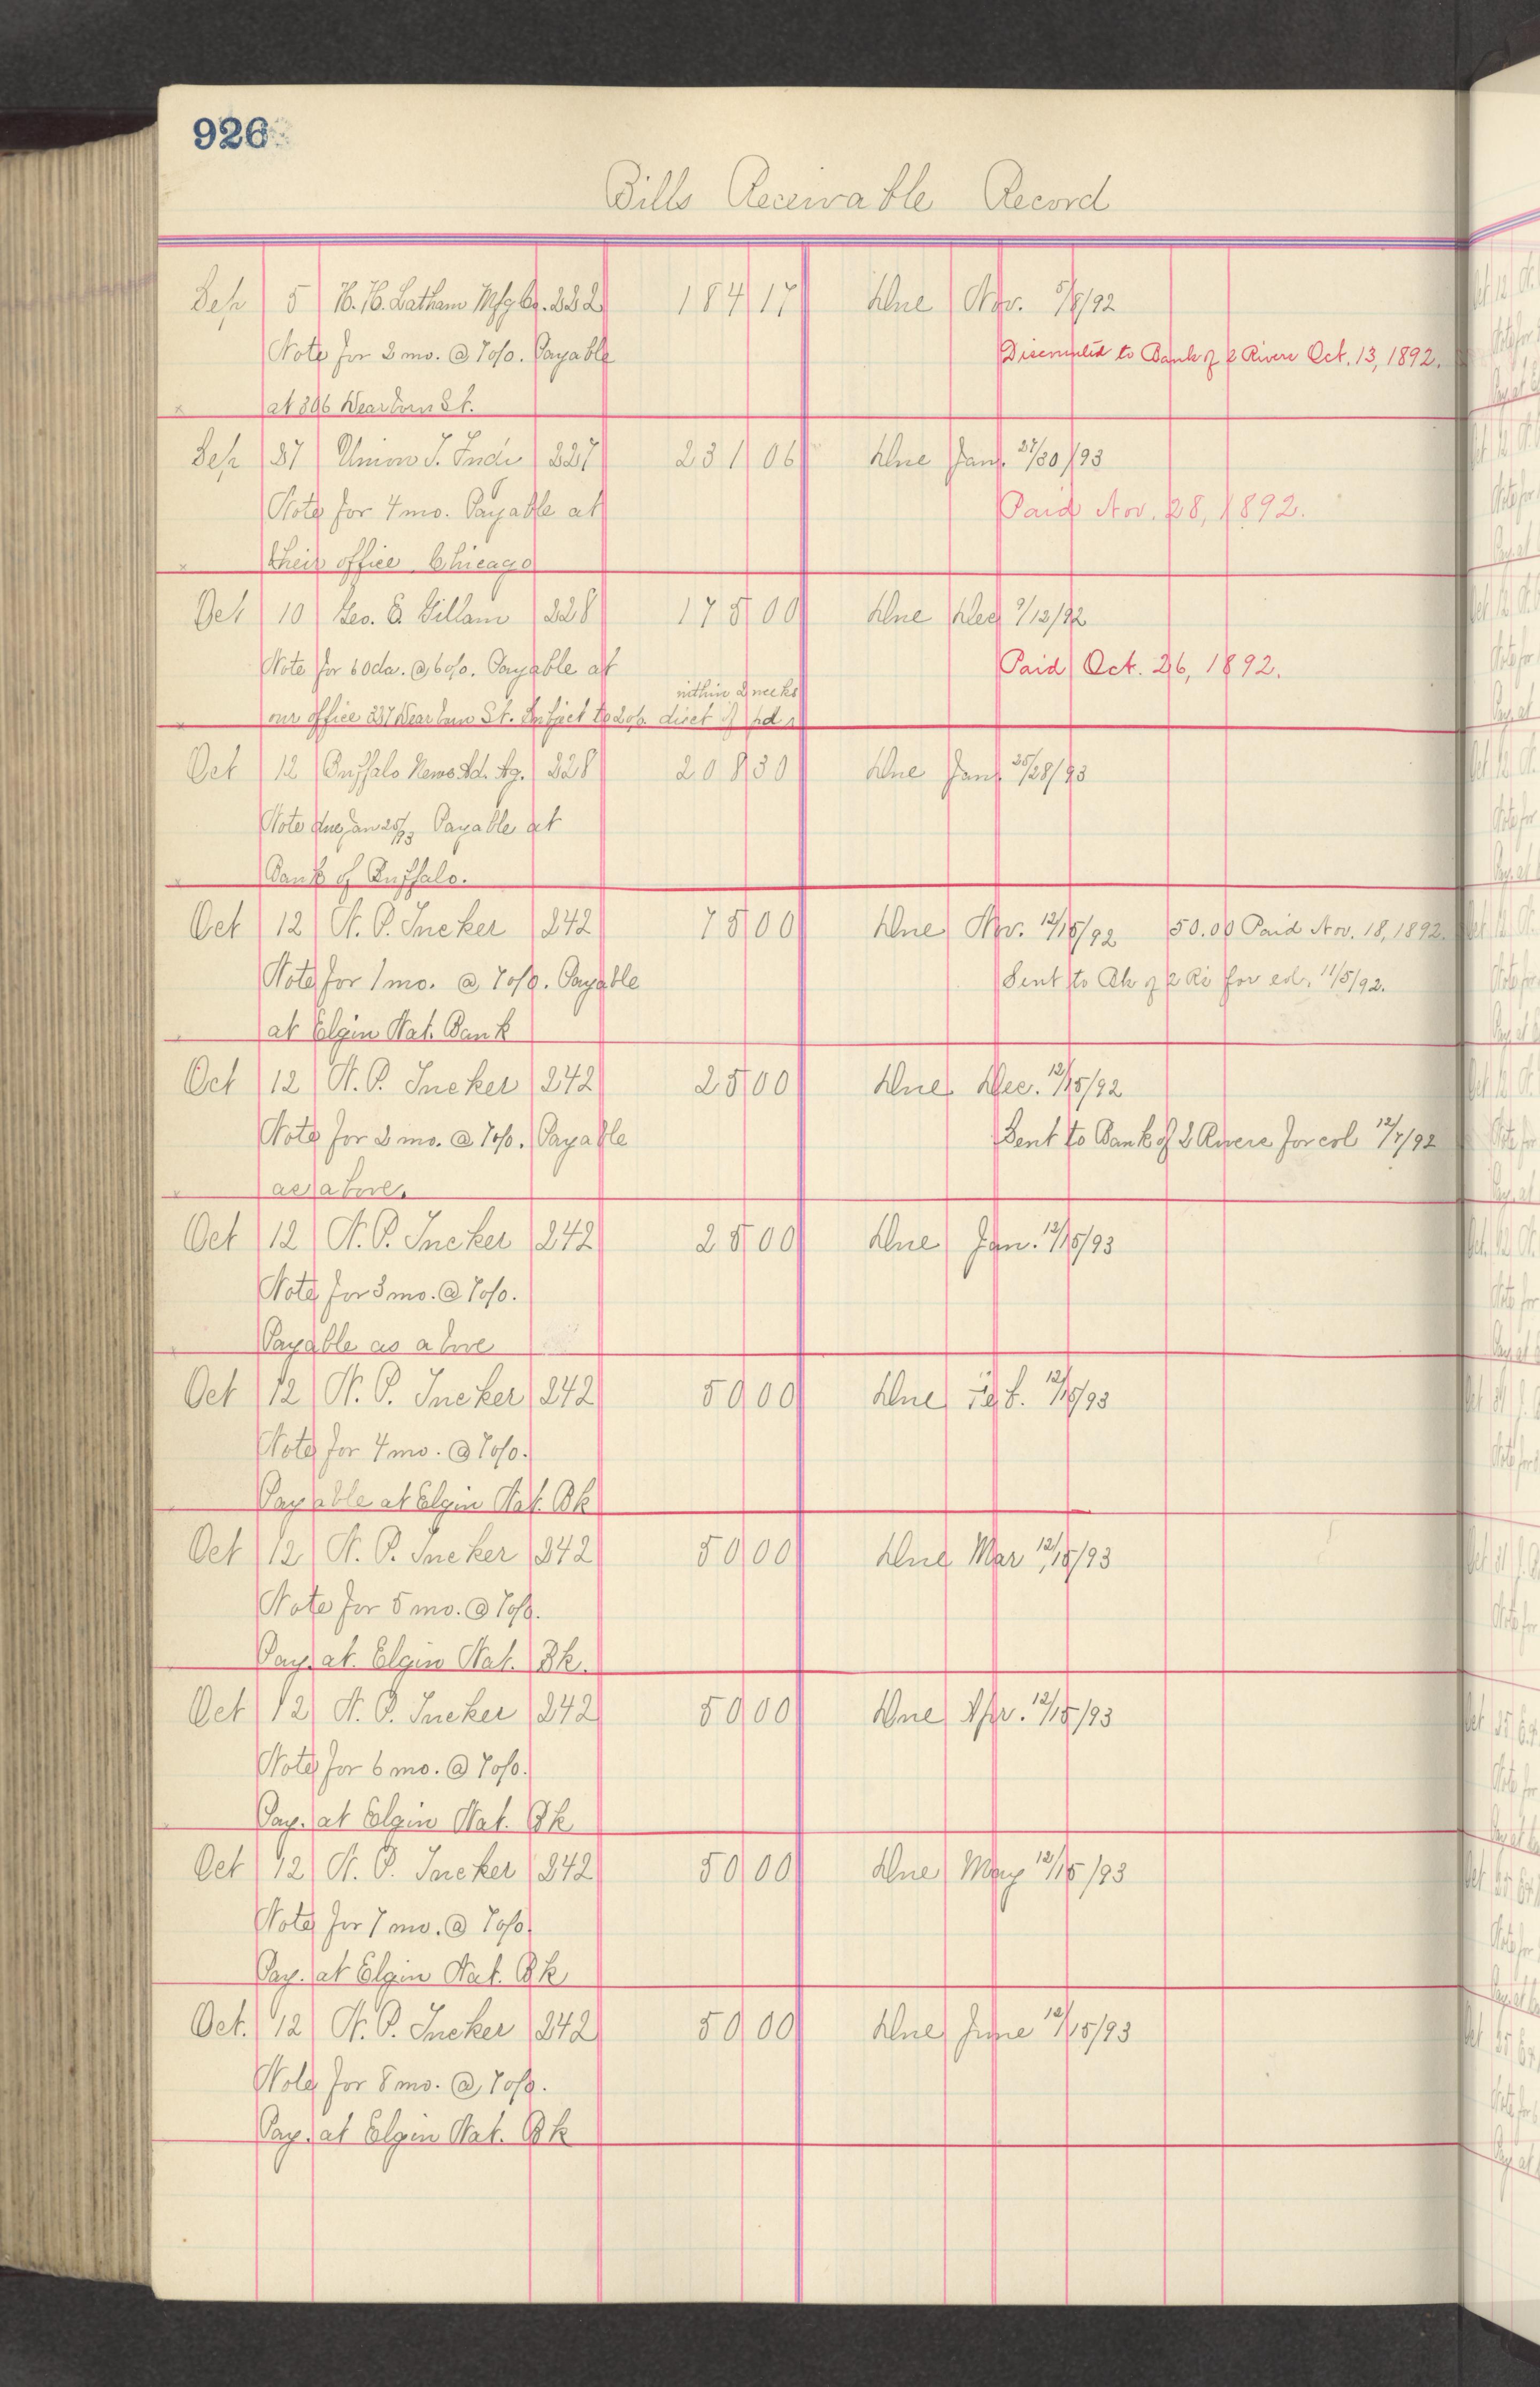 926
Bills Receivable Record
Sep 5 H. H. Latham Mfg Co. 222 184 17 Due Nov. 5/8/92
Note for 2 mo. @ 7o/o. Payable Discounted to Bank of 2 Rivers Oct. 13, 1892.
at 306 Dearborn St.
Sep 27 Union T. Indi 227 231 06 Due Jany. 27/30/93
Note for 4 mo. Payable at Paid Nov. 28, 1892.
their office Chicago
Oct 10 Geo. E. Gillam 228 175 00 Due Dec 9/12/92
Note for 60 da. @ 6o/o. Payable at Paid Oct. 26, 1892.
within 2 weeks
our office 237 Dearborn St. Subject to 2o/o. disct if pd
Oct 12 Buffalo News Ad. Ag. 228 208 30 Due Jany 25/28/93
Note due Jan 25/93 Payable at
Bank of Buffalo.
Oct 12 N. P. Tucker 242 75 00 Due Nov. 12/15/92 50.00 Paid Nov. 18, 1892.
Note for 1 mo. @ 7o/o. Payable Sent to Bk of 2 Ri for col. 11/5/92.
at Elgin Nat. Bank
Oct 12 N. P. Tucker 242 25 00 Due Dec. 12/15/92
Note for 2 mo. @ 7o/o. Payable Sent to Bank of 2 Rivers for col 12/7/92
as above.
Oct 12 N. P. Tucker 242 25 00 Due Jan. 12/15/93
Note for 3 mo. @ 7o/o.
Payable as above
Oct 12 N. P. Tucker 242 50 00 Due Feb. 12/15/93
Note for 4 mo. @ 7o/o.
Payable at Elgin Nat. Bk
Oct 12 N. P. Tucker 242 50 00 Due Mar 12/15/93
Note for 5 mo. @ 7o/o.
Pay. at. Elgin Nat. Bk.
Oct 12 N. P. Tucker 242 50 00 Due Apr. 12/15/93
Note for 6 mo. @ 7o/o.
Pay. at Elgin Nat. Bk
Oct 12 N. P. Tucker 242 50 00 Due May 12/15/93
Note for 7 mo. @ 7o/o
Pay. at Elgin Nat. Bk
Oct. 12 N. P. Tucker 242 50 00 Due June 12/15/93
Note for 8 mo. @ 7o/o.
Pay. at Elgin Nat. Bk